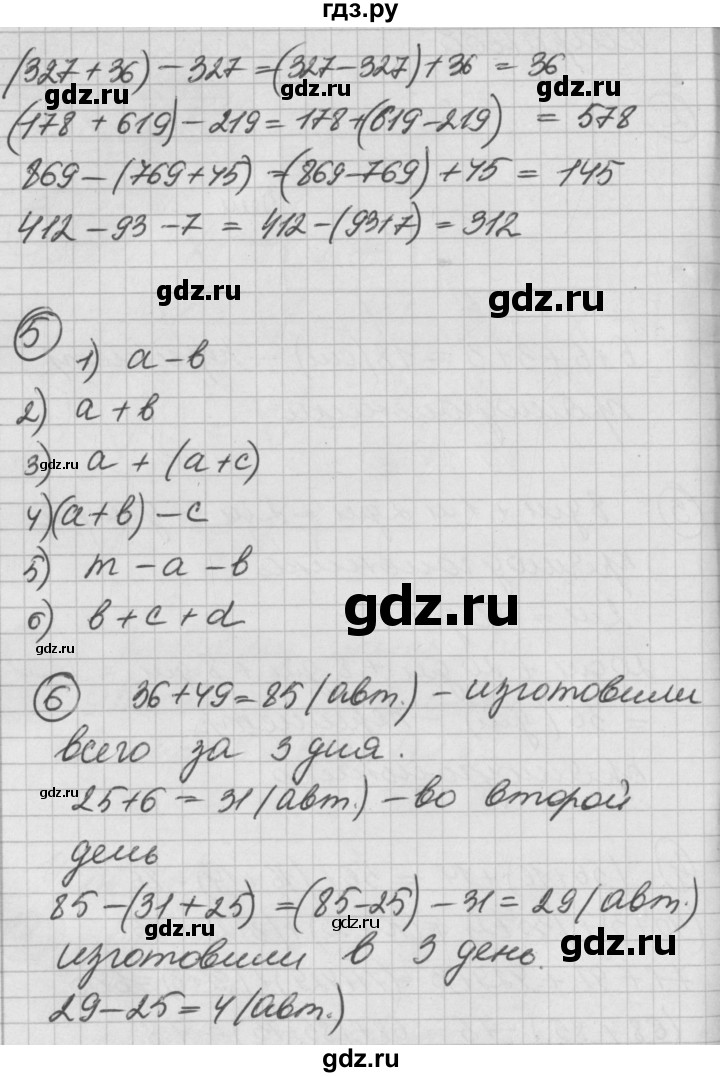 гдз.ру
(327 + 36) - 327 = (327 - 327) + 36 = 36
gdz.ru gdz.ru gdz.ru
(178 + 619) - 219 = 178 + (619 - 219) = 578
869 - (769 + 45) = (869 - 769) + 45 = 145
gdz.ru gdz.ru
412 - 93 - 7 = 412 - (93 + 7) = 312
gdz.ru gdz.ru
5
1) a - b
2) a + b
3) a + (a + c)
gdz.ru gdz.ru
4) (a + b) - c
5) m - a - b
gdz.ru
6) b + c + d
gdz.ru
6 36 + 49 = 85 (авт.) - изготовили
gdz.ru
всего за 3 дня.
gdz.ru gdz.ru
25 + 6 = 31 (авт.) - во второй
день
85 - (31 + 25) = (85 - 25) - 31 = 29 (авт.)
gdz.ru gdz.ru gdz.ru
изготовили в 3 день.
29 - 25 = 4 (авт.)
gdz.ru